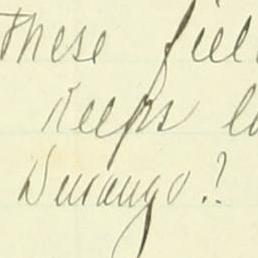 These fiel
Keeps lo
Durango?